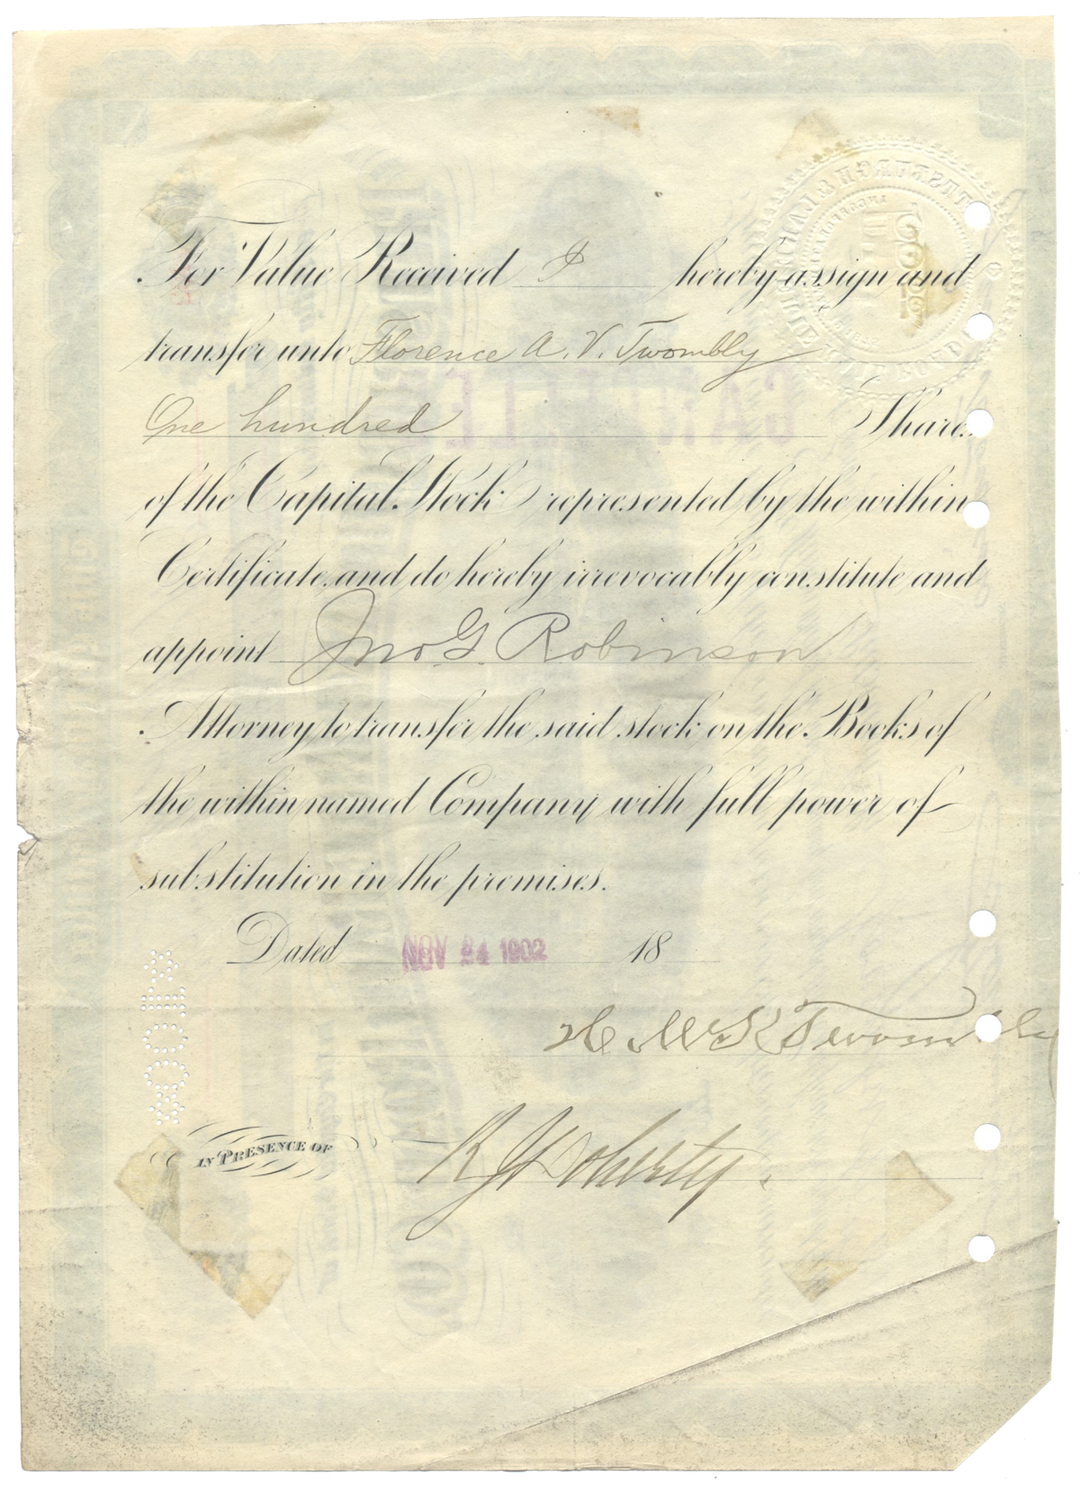 For Value Received I hereby assign and
transfer unto Florence A. V. Twombly
One hundred Shares
of the Capital Stock represented by the within
Certificate and do hereby irrevocably constitute and
appoint Jno G. Robinson
Attorney to transfer the said stock on the Books of
the within named Company with full power of
substitution in the premises.
Dated NOV 24 1902 18
H McK Twombly
IN PRESENCE OF R J Doherty.